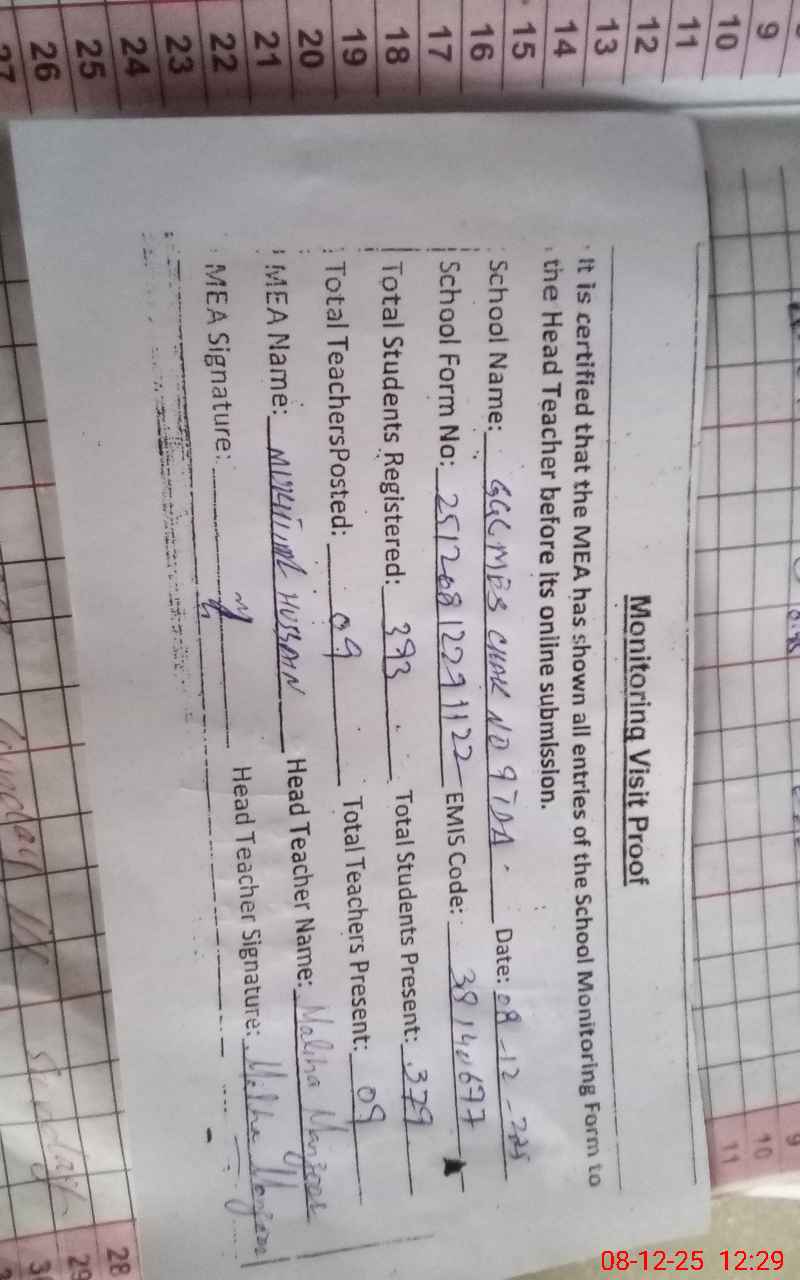 Monitoring Visit Proof
It is certified that the MEA has shown all entries of the School Monitoring Form to
the Head Teacher before its online submission.
School Name: GGCMES CHAK NO 9TDA. Date: 08-12-
School Form No: EMIS Code: 38140677
Total Students Registered: 393 Total Students Present: 379
Total TeachersPosted: 09 Total Teachers Present: 09
MEA Name: HUSSAIN Head Teacher Name: Maliha
MEA Signature: Head Teacher Signature: Maliha
9
10
11
12
13
14
15
16
17
18
19
20
21
22
23
24
25
26
27
9
10
11
28
29
Sunday
08-12-25 12:29